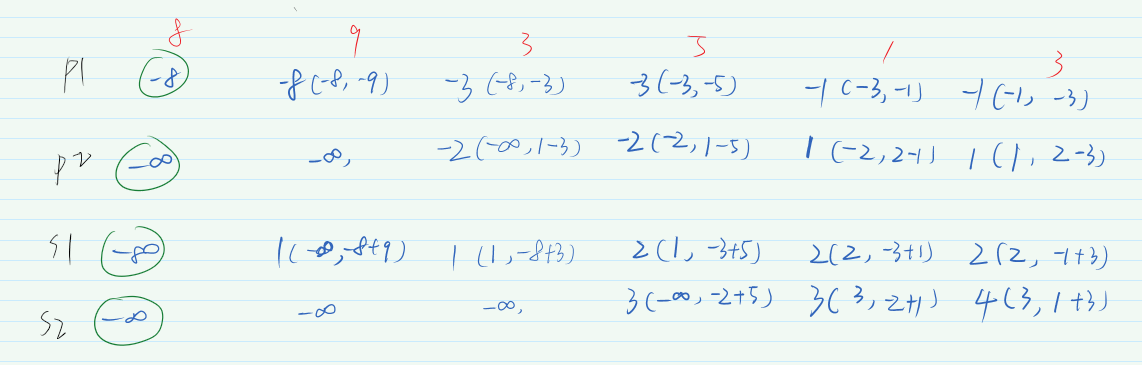 8 9 3 5 1 3
P1 -8 -8(-8,-9) -3(-8,-3) -3(-3,-5) -1(-3,-1) -1(-1, -3)
P2 -∞ -∞, -2(-∞,1-3) -2(-2,1-5) 1(-2,2-1) 1(1, 2-3)
S1 -∞ 1(-∞,-8+9) 1(1,-8+3) 2(1,-3+5) 2(2,-3+1) 2(2,-1+3)
S2 -∞ -∞ -∞, 3(-∞,-2+5) 3(3,-2+1) 4(3,1+3)